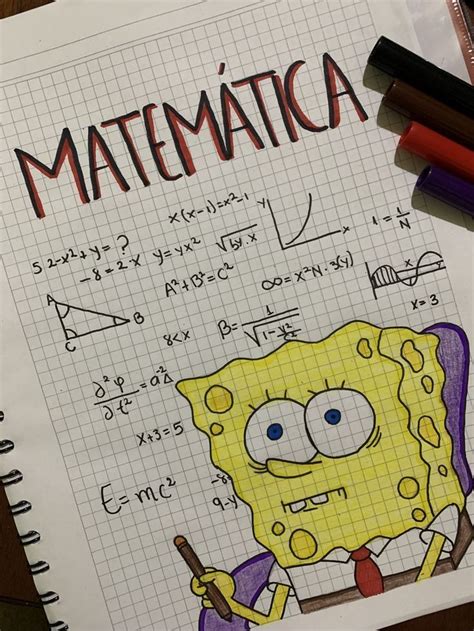 MATEMÁTICA
x(x-1)=x²-1
5 2-x²+y=?
-8=2x
y=yx²
√by.x
y
x
1=1/N
A²+B²=C²
∞=x²N.3(y)
x
x=3
A
B
C
8<x
β=1/√1-v²/c²
∂²φ/∂t²=a⁻²Δ
x+3=5
E=mc²
-8
9-y